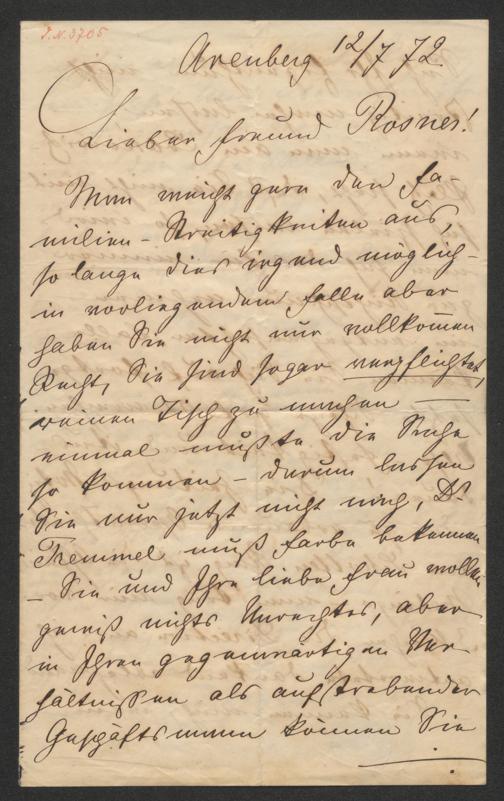 I.N. 3705
Arenberg 12/7 72
Lieber Freund Rosner!
Man weicht gern den Fa-
milien-Streitigkeiten aus,
so lange dies irgend möglich -
in vorliegendem Falle aber
haben Sie nicht nur vollkom̄en
Recht, Sie sind sogar verpflichtet,
reinen Tisch zu machen —
einmal mußte die Sache
so kommen - darum lassen
Sie nur jetzt nicht nach, Dr
Tremmel muß Farbe bekennen
- Sie und Ihre liebe Frau wollen
gewiß nichts Unrechtes, aber
in Ihren gegenwärtigen Ver-
hältnißen als aufstrebender
Geschäftsmann können Sie